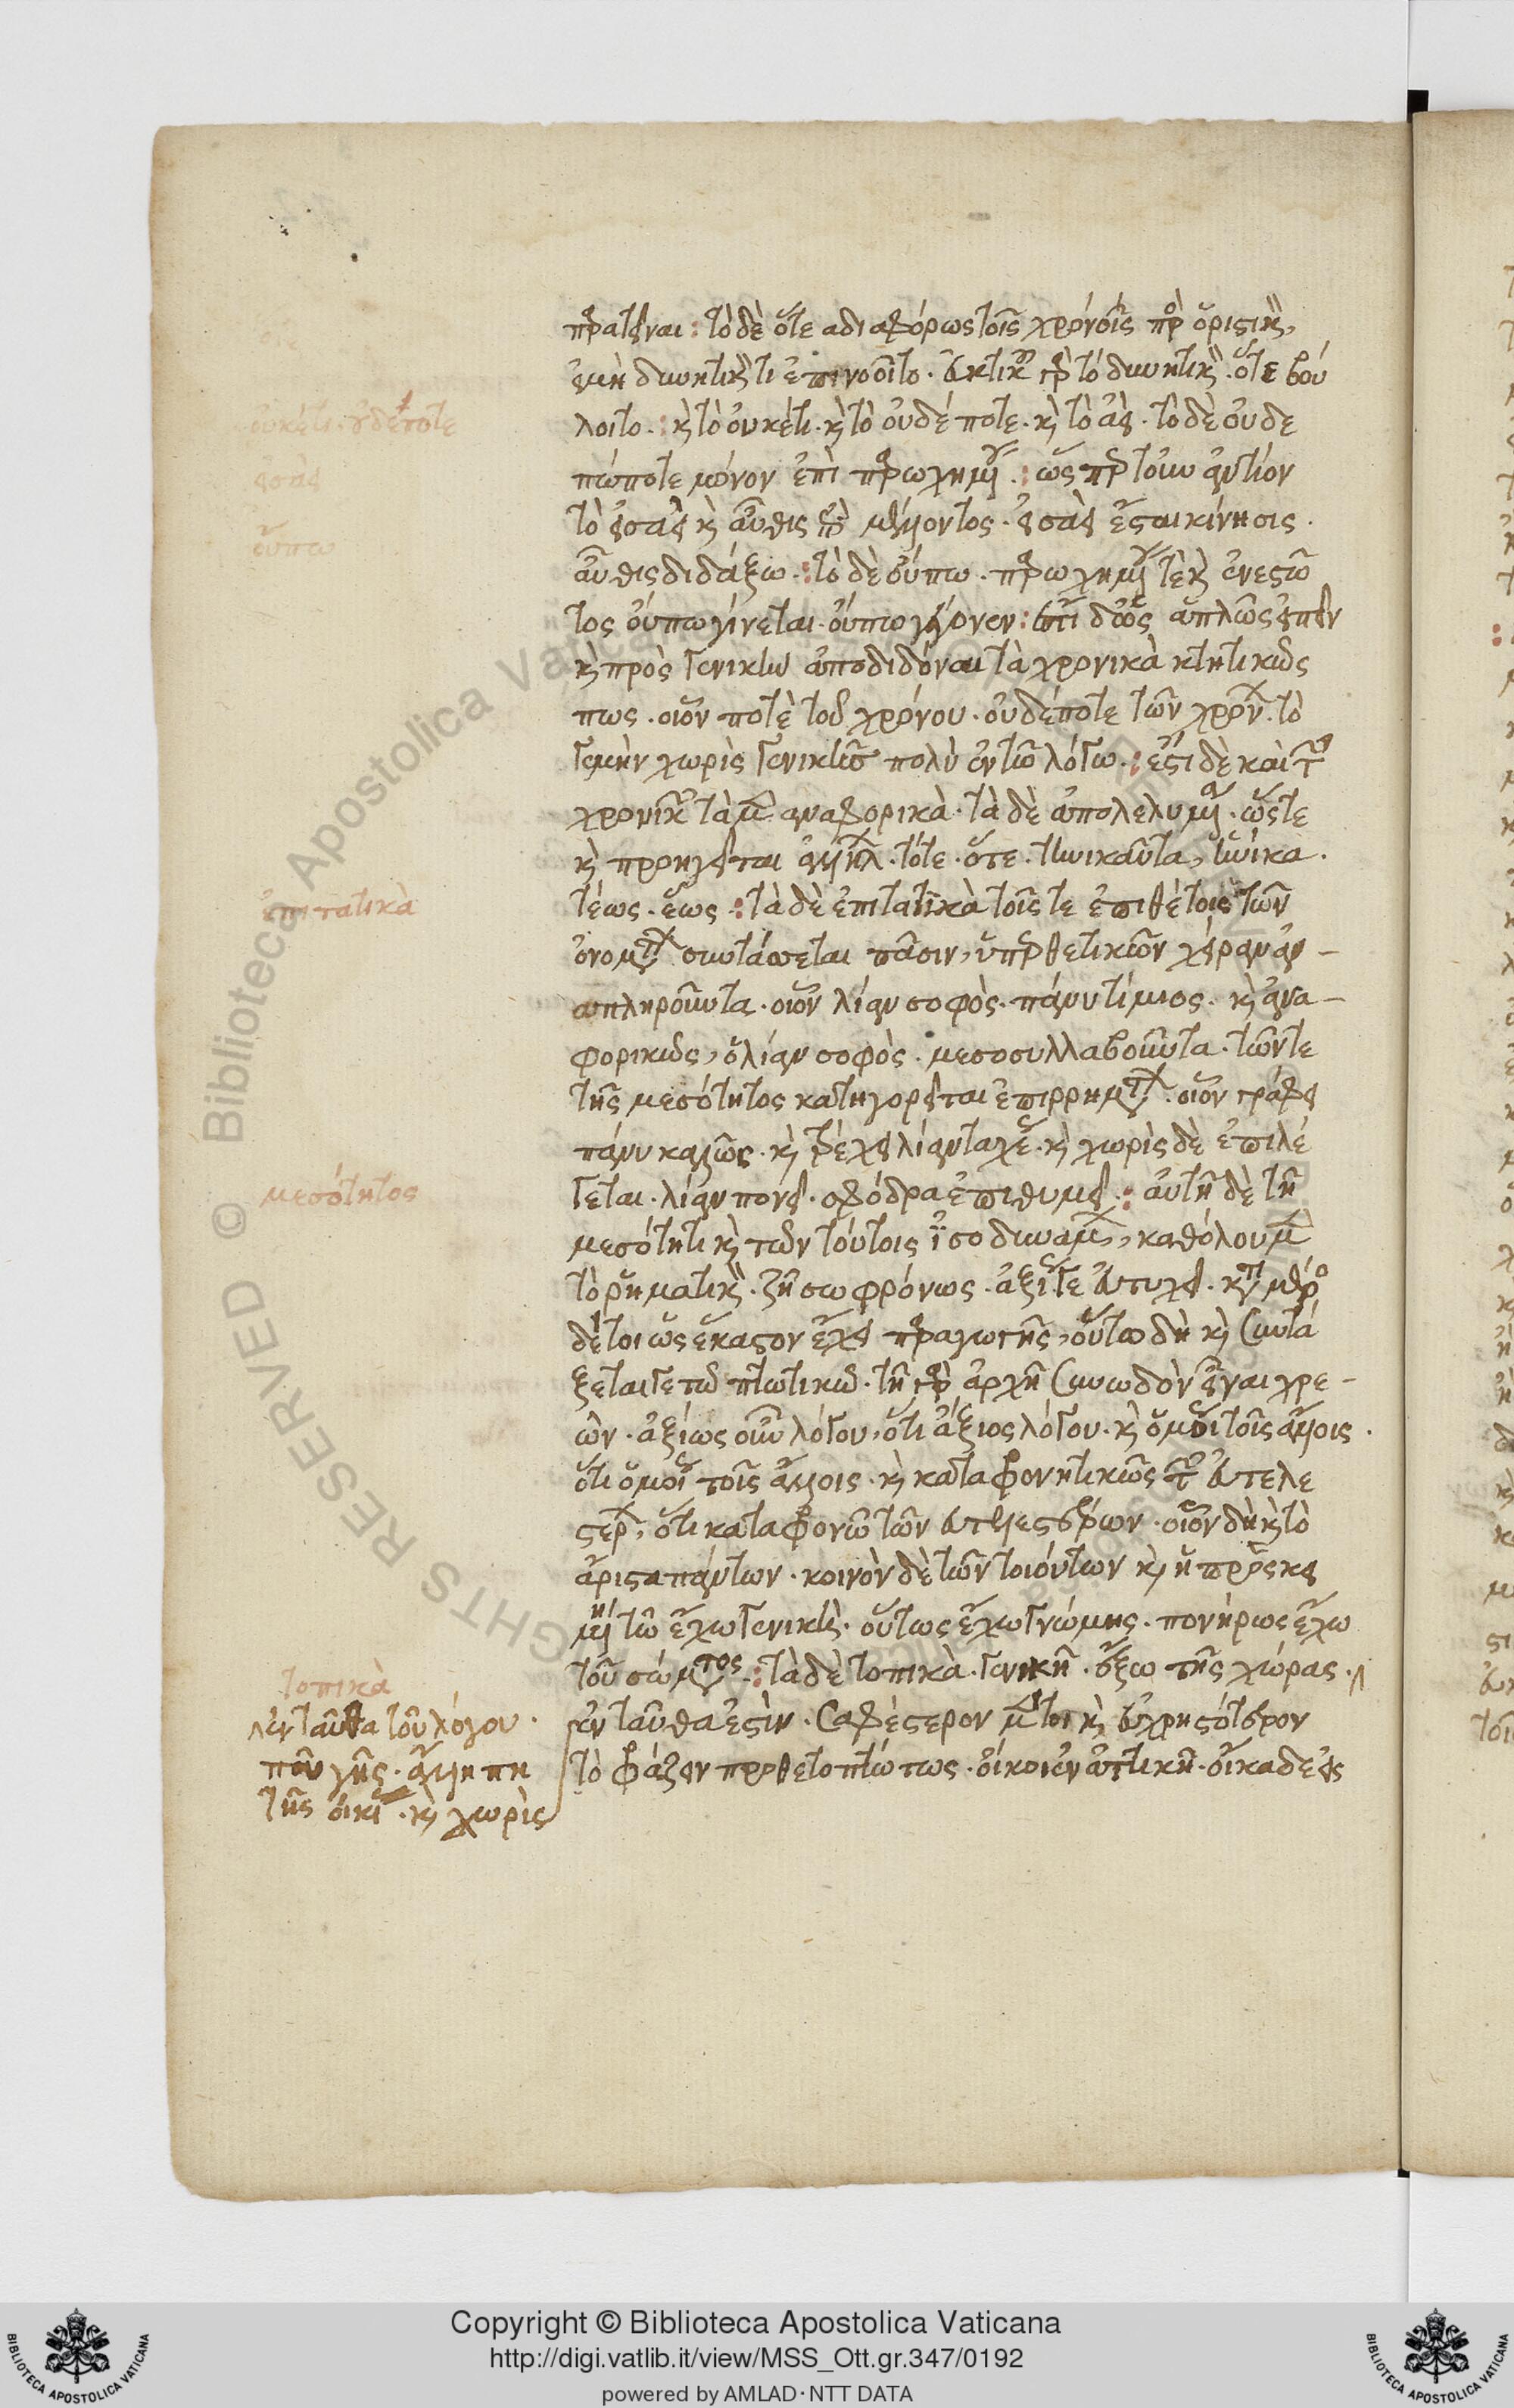 παρατεῖναι: τὸ δὲ ὅτε ἀδιαφόρως τοῖς χρόνοις παρὰ ὁριστικὴν,
εἰ μὴ δυνητικόν τι ἐπινοοῖτο. εὐκτικὸν γὰρ τὸ δυνητικὸν. ὅτε βού
λοιτο: καὶ τὸ οὐκέτι. καὶ τὸ οὐδέποτε. καὶ τὸ ἀεί. τὸ δὲ οὐδε
πώποτε μόνον ἐπὶ παρωχημένου: ὥσπερ τοὐναντίον
τὸ εἰσαεὶ καὶ αὖθις ἐπὶ μέλλοντος. εἰσαεὶ ἔσται κίνησις.
αὖθις διδάξω: τὸ δὲ οὔπω. παρωχημένου τὲ καὶ ἐνεστῶ
τος οὔπω γίνεται. οὔπω γέγονεν: ἔτι δ' ὡς ἁπλῶς εἰπεῖν
καὶ πρὸς γενικὴν ἀποδιδόναι τὰ χρονικὰ κτητικῶς
πως. οἷον ποτὲ τοῦ χρόνου. οὐδέποτε τῶν χρόνων. τὸ
γε μὴν χωρὶς γενικῆς πολὺ ἐν τῶ λόγω: ἔστι δὲ καὶ τῶν
χρονικῶν τὰ μὲν ἀναφορικὰ. τὰ δὲ ἀπολελυμένα. ὥστε
καὶ προηγεῖται ἀλλήλων. τότε. ὅτε. τηνικαῦτα, ἡνίκα.
τέως. ἕως: τὰ δὲ ἐπιτατικὰ τοῖς τε ἐπιθέτοις τῶν
ὀνομάτων συντάσσεται πᾶσιν, ὑπερθετικῶν χείραν ἀν-
απληροῦντα. οἷον λίαν σοφὸς. πάνυ τίμιος. καὶ ἀνα-
φορικῶς, ὁ λίαν σοφὸς. μεσοσυλλαβοῦντα. τῶν τε
τῆς μεσότητος κατηγορεῖται ἐπιρρημάτων. οἷον γράφει
πάνυ καλῶς. καὶ τρέχει λίαν ταχέως. καὶ χωρὶς δὲ ἐπιλέ
γεται. λίαν πονεῖ. σφόδρα ἐπιθυμεῖ: αὐτῆ δὲ τῆ
μεσότητι καὶ τῶν τούτοις ἰσοδυναμούντων, καθόλου μὲν
τὸ ῥηματικὸν. ζῆ σωφρόνως. ἀξίως γε εὐτυχεῖ. κατὰ μέρος
δέ τοι ὡς ἕκαστον ἔχει παραγωγῆς, οὕτω δὴ καὶ συντά
ξεται γε τῶ πτωτικῶ. τῆ γὰρ ἀρχῆ συνωδὸν εἶναι χρε-
ών. ἀξίως οὖν λόγου, ὅτι ἄξιος λόγου. καὶ ὁμοίως τοῖς ἄλλοις.
ὅτι ὅμοιος τοῖς ἄλλοις. καὶ καταφρονητικῶς τῶν εὐτελε
στέρων, ὅτι καταφρονῶ τῶν εὐτελεστέρων. οἷον δὴ καὶ τὸ
ἄριστα πάντων. κοινὸν δὲ τῶν τοιούτων καὶ ἡ προσκει
μένη τῶ ἔχω γενικὴ. οὕτως ἔχω γνώμης. πονήρως ἔχω
τοῦ σώματος: τὰ δὲ τοπικὰ. γενικῆ. ἔξω τῆς χώρας.
ἐνταῦθα ἐστὶν. σαφέστερον μέντοι καὶ εὐχρηστότερον
τὸ φράζειν προθετοπτώτως. οἴκοι ἐν ἀττικῆ. οἴκαδε εἰς
οὐκέτι. οὐδέποτε
εἰσαεὶ
οὔπω
ἐπιτατικὰ
μεσότητος
τοπικὰ
ἐνταῦθα τοῦ λόγου.
ποῦ γῆς. ἄλλη πη
τῆς οἰκίας. καὶ χωρὶς
Copyright © Biblioteca Apostolica Vaticana
http://digi.vatlib.it/view/MSS_Ott.gr.347/0192
powered by AMLAD·NTT DATA